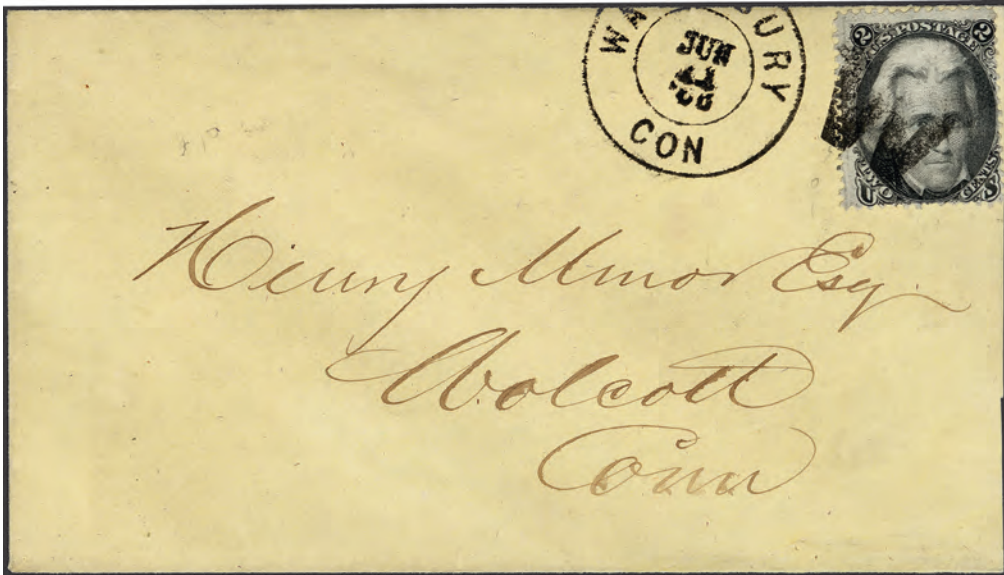 WA URY
JUN
11
'66
CON
2 U.S. POSTAGE 2
TWO CENTS
U S
Henry Minor Esq.
Wolcott
Conn